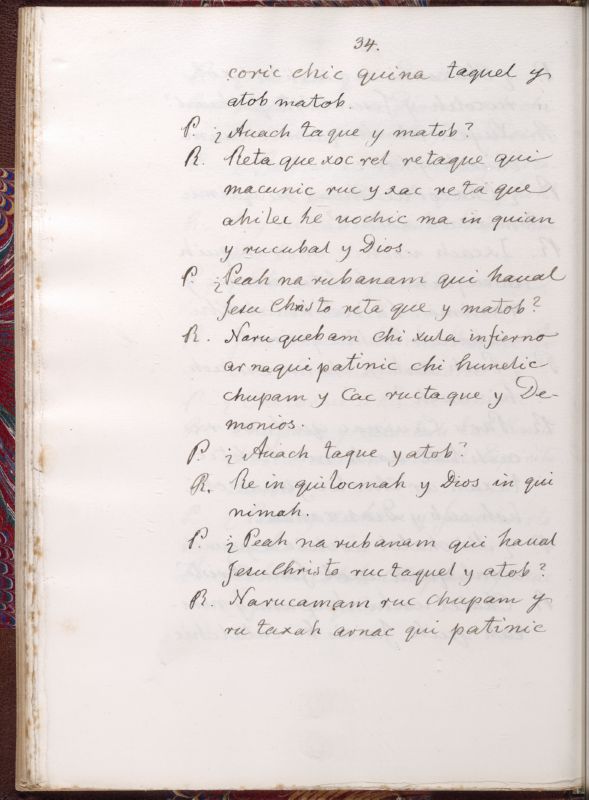 34.
coric chic quina taquel y
atob matob.
P. ¿Auach taque y matob?
R. Reta que xoc rel retaque qui
macunic ruc y xac reta que
ahilec hē uochic ma in quian
y rucubal y Dios.
P. ¿Peah na rubanam qui haual
Jesu Christo reta que y matob?
R. Naru quebam chi xula infierno
ar naqui patinic chi hunelic
chupam y Cac ructaque y De-
monios.
P. ¿Auach taque y atob?
R. Re in quilocmah y Dios in qui
nimah.
P. ¿Peah na rubanam qui haual
Jesu Christo ruc taquel y atob?
R. Narucamam ruc chupam y
ru taxah arnac qui patinic